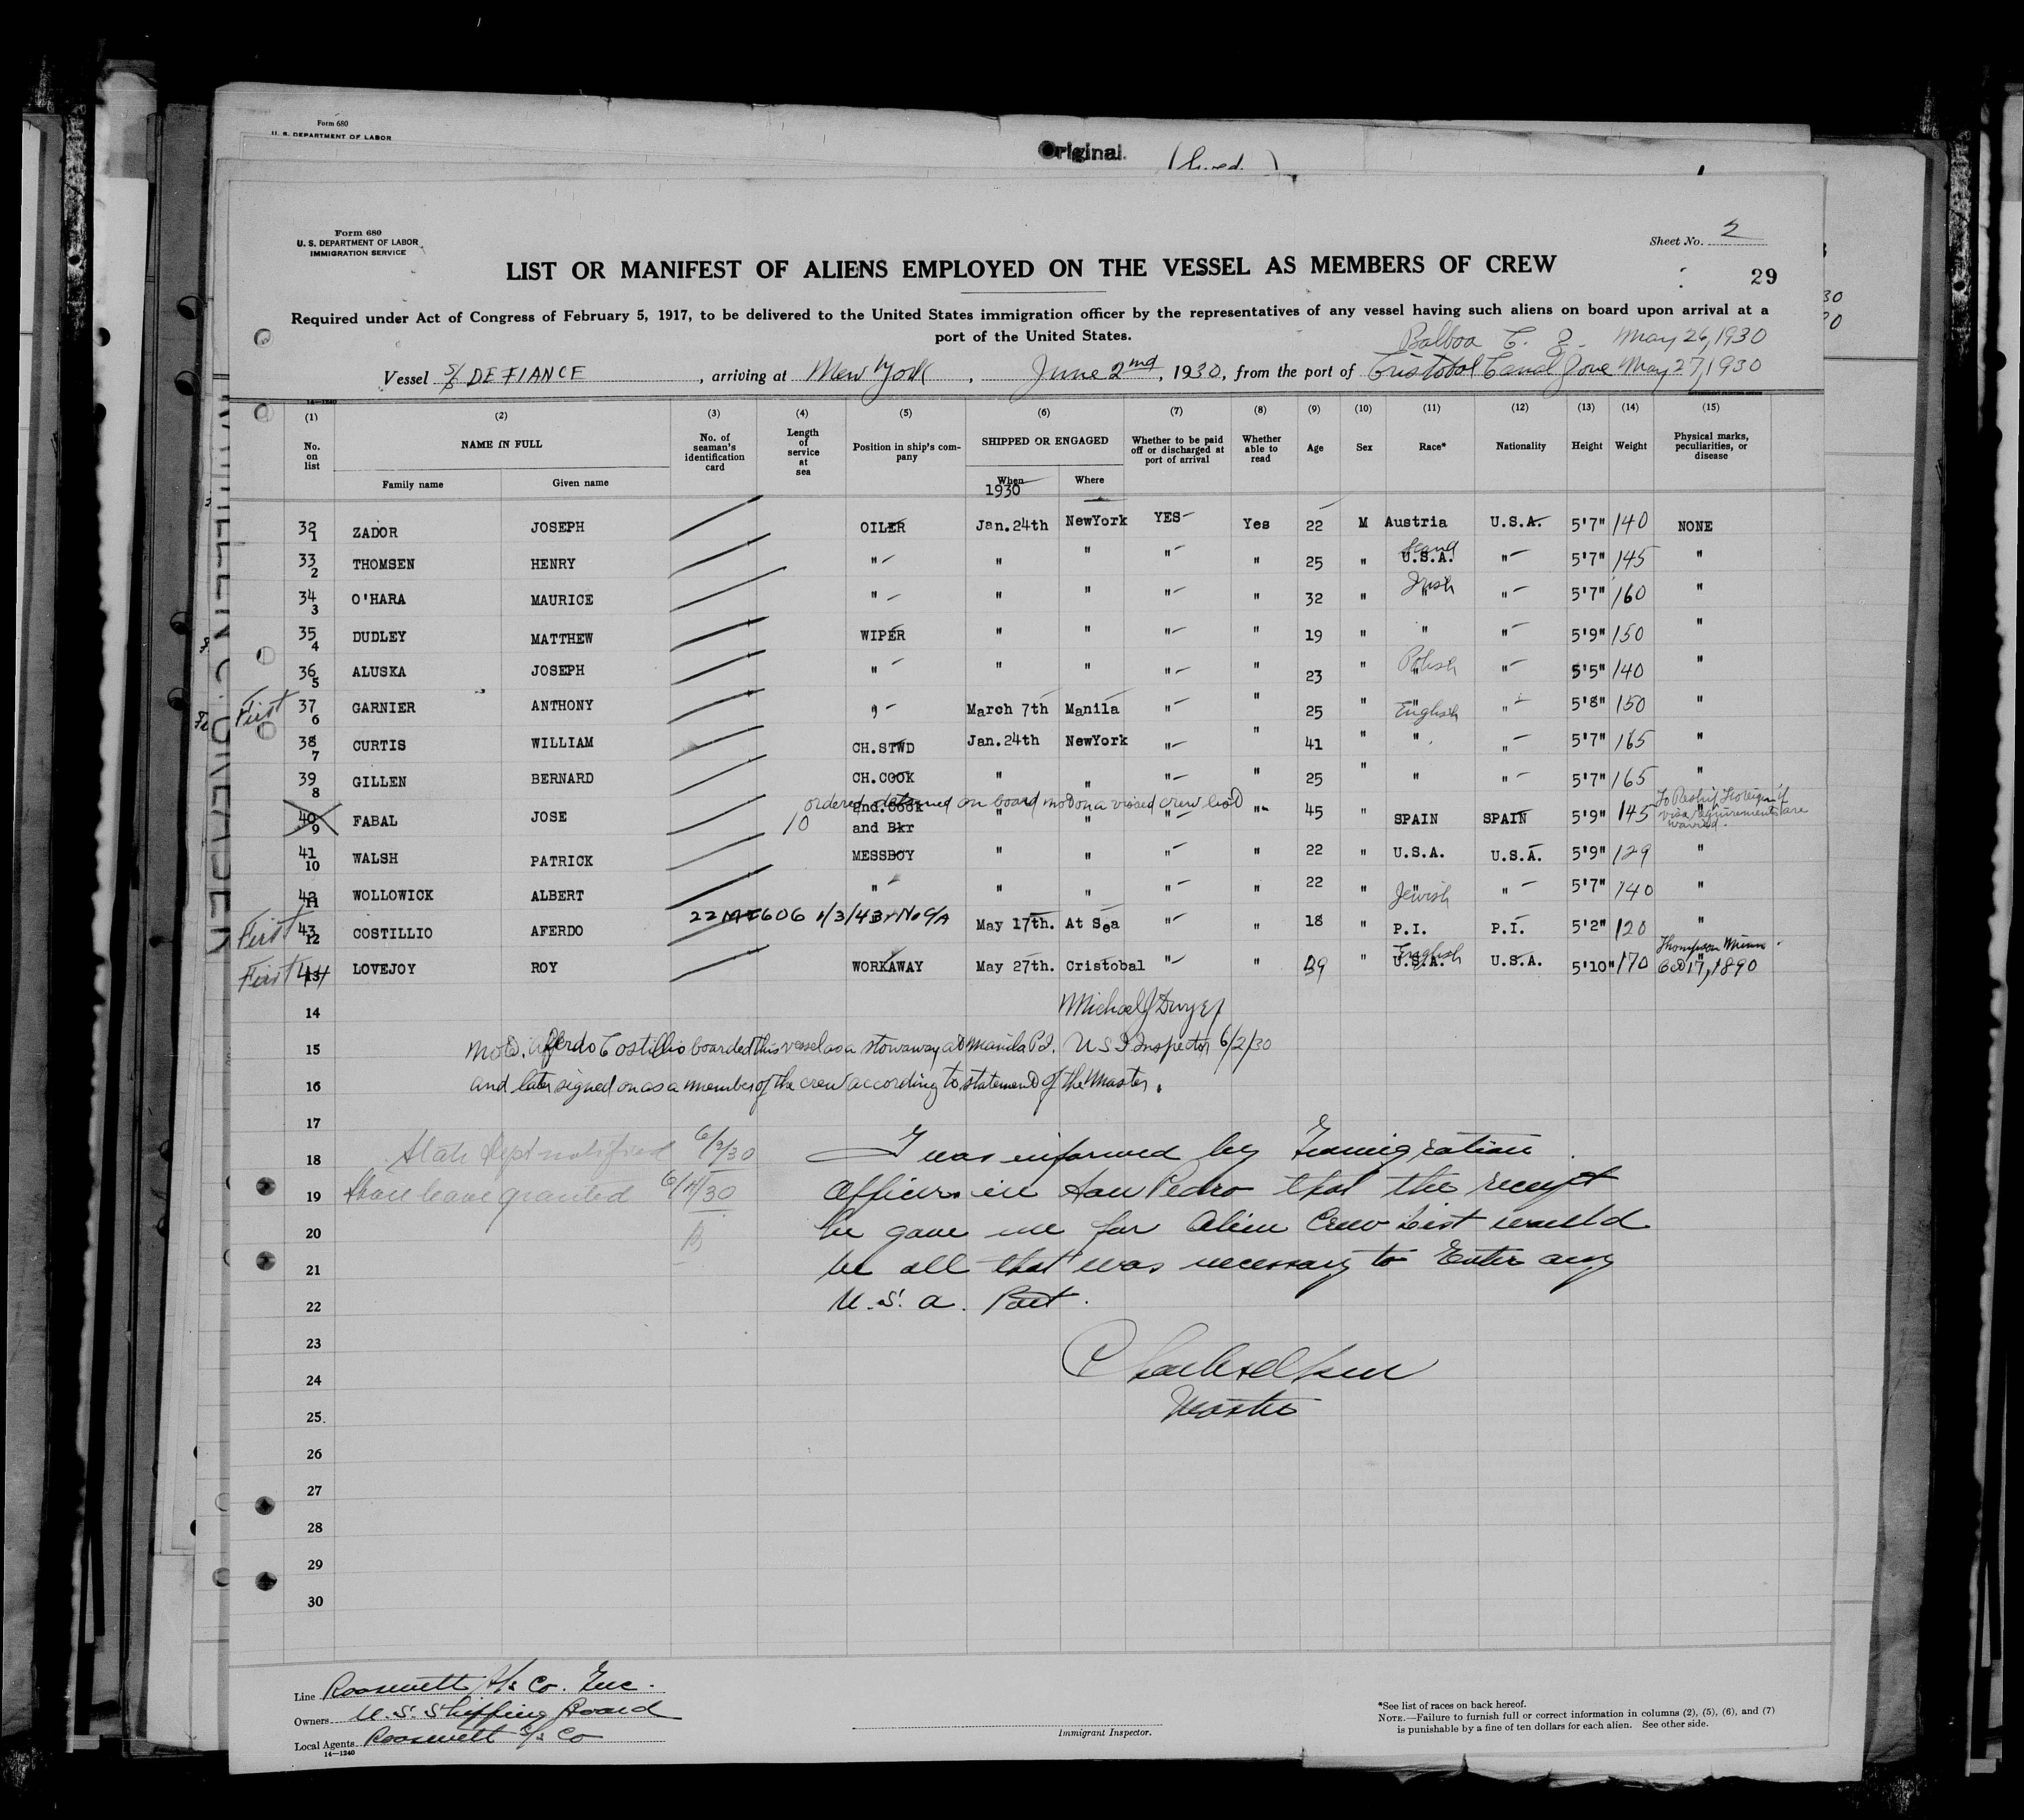 Form 680
U. S. DEPARTMENT OF LABOR
Original
Form 680
U. S. DEPARTMENT OF LABOR
IMMIGRATION SERVICE
Sheet No. 2
LIST OR MANIFEST OF ALIENS EMPLOYED ON THE VESSEL AS MEMBERS OF CREW
29
Required under Act of Congress of February 5, 1917, to be delivered to the United States immigration officer by the representatives of any vessel having such aliens on board upon arrival at a
port of the United States.
Balboa C. Z. May 26, 1930
Vessel S/S DEFIANCE, arriving at New York, June 2nd, 1930, from the port of Cristobal Canal Zone May 27, 1930
14—1240
(1) (2) (3) (4) (5) (6) (7) (8) (9) (10) (11) (12) (13) (14) (15)
No. on list NAME IN FULL No. of seaman's identification card Length of service at sea Position in ship's company SHIPPED OR ENGAGED Whether to be paid off or discharged at port of arrival Whether able to read Age Sex Race* Nationality Height Weight Physical marks, peculiarities, or disease
Family name Given name When Where
1930
32 1 ZADOR JOSEPH OILER Jan.24th NewYork YES Yes 22 M Austria U.S.A. 5'7" 140 NONE
33 2 THOMSEN HENRY " " " " " 25 " Scand U.S.A. " 5'7" 145 "
34 3 O'HARA MAURICE " " " " " 32 " Irish " " 5'7" 160 "
35 4 DUDLEY MATTHEW WIPER " " " " 19 " " " 5'9" 150 "
36 5 ALUSKA JOSEPH " " " " " 23 " Polish " " 5'5" 140 "
First 37 6 GARNIER ANTHONY " March 7th Manila " " 25 " English " " 5'8" 150 "
38 7 CURTIS WILLIAM CH.STWD Jan.24th NewYork " " 41 " " " 5'7" 165 "
39 8 GILLEN BERNARD CH.COOK " " " " 25 " " " 5'7" 165 "
ordered detained on board not on a visaed crew list
40 9 FABAL JOSE 10 2nd.Cook and Bkr " " " " 45 " SPAIN SPAIN 5'9" 145 " To Reship Foreign if visa requirements are waived.
41 10 WALSH PATRICK MESSBOY " " " " 22 " U.S.A. U.S.A. 5'9" 129 "
42 11 WOLLOWICK ALBERT " " " " " 22 " Jewish " " 5'7" 140 "
First 43 12 COSTILLIO AFERDO May 17th. At Sea " " 18 " P.I. P.I. 5'2" 120 "
First 44 13 LOVEJOY ROY WORKAWAY May 27th. Cristobal " " 39 " English U.S.A. U.S.A. 5'10" 170 " Thompson Minn. Oct 17, 1890
14 Michael J Dwyer
15 Note. Aferdo Costillio boarded this vessel as a stowaway at Manila P.I. U S I Inspector 6/2/30
16 and later signed on as a member of the crew according to statement of the Master.
17
18 State Dept notified 6/2/30 I was informed by Immigration
19 Shore leave granted 6/4/30 Officer in San Pedro that the receipt
20 he gave me for Alien Crew List would
21 be all that was necessary to Enter any
22 U. S. A. Port.
23
24
25 Master
26
27
28
29
30
Line Roosevelt S/S Co. Inc.
Owners U. S. Shipping Board
Local Agents Roosevelt S/S Co
14—1240
Immigrant Inspector.
*See list of races on back hereof.
NOTE.—Failure to furnish full or correct information in columns (2), (5), (6), and (7)
is punishable by a fine of ten dollars for each alien. See other side.